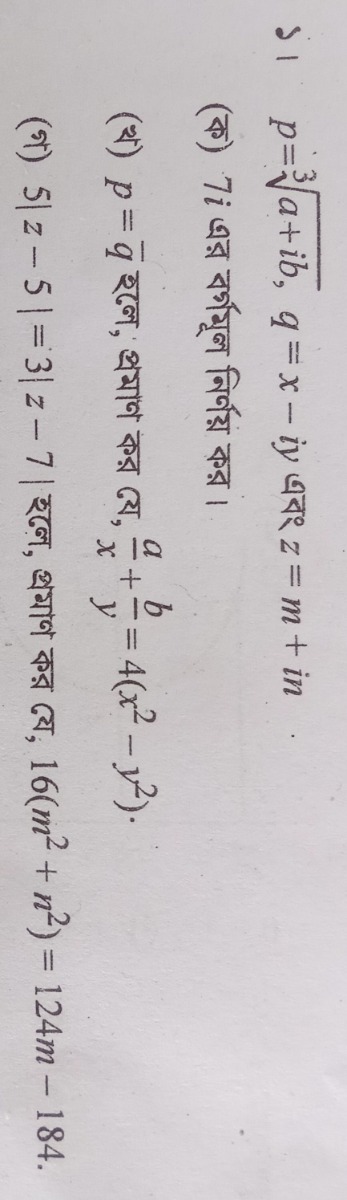 ১। p=∛(a+ib), q=x−iy এবং z=m+in
(ক) 7i এর বর্গমূল নির্ণয় কর।
(খ) p=q̄ হলে, প্রমাণ কর যে, a/x + b/y = 4(x² − y²).
(গ) 5|z − 5| = 3|z − 7| হলে, প্রমাণ কর যে, 16(m² + n²) = 124m − 184.